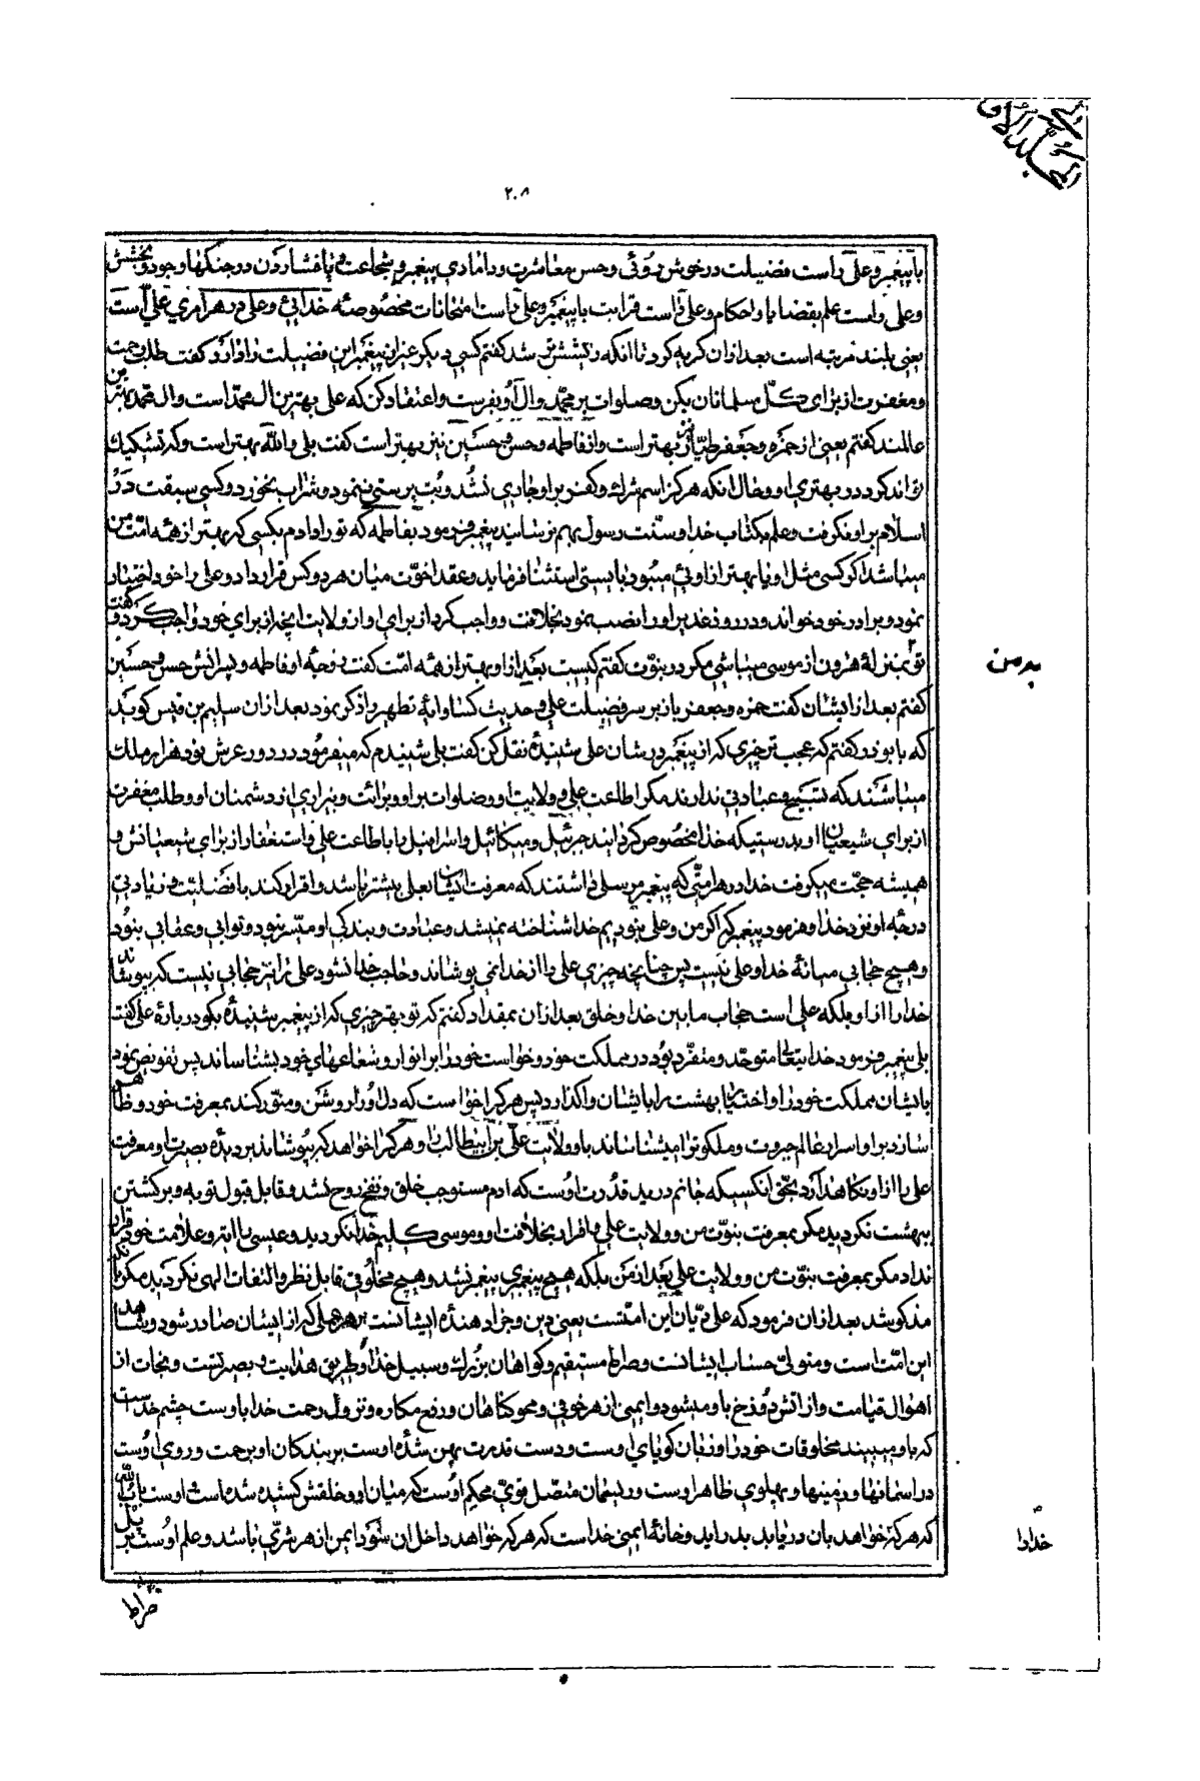 المجلد الاول
٢٠٨
با پیغمبر و علی راست فضیلت در خوش روئی و حسن معاشرت و دامادی پیغمبر و شجاعت و پا فشاردن در جنگها و جود و بخشش
و علی راست علم بقضایا و احکام و علی راست قرابت با پیغمبر و علی راست امتحانات مخصوصهٔ خدائی و علی در هر امری علی است
یعنی بلند مرتبه است بعد از ان گریه کرد تا انکه ریشش تر شد گفتم کسی دیگر غیر این پیغمبر این فضیلت را دارد گفت طلب رحمت
و مغفرت از برای کل مسلمانان بکن و صلوات بر محمد و ال او بفرست و اعتقاد کن که علی بهترین ال محمد است و ال محمد بهترین
عالمند گفتم یعنی از حمزه و جعفر طیار نیز بهتر است و از فاطمه و حسن و حسین نیز بهتر است گفت بلی والله بهتر است و که تشکیک
تواند کرد در بهتری او و حال انکه هرگز اسم شرک و کفر بر او جاری نشد و بت پرستی ننمود و شراب نخورد و کسی سبقت در
اسلام بر او نگرفت و علم بکتاب خدا و سنت رسول بهم نرسانید پیغمبر فرمود بفاطمه که تو را دادم بکسی که بهتر از همه امت من
میباشد اگر کسی مثل او یا بهتر از اوئی میبود بایستی استثنا فرماید و عقد اخوت میان هر دو کس قرار داد و علی را خود اختیار
نمود و برادر خود خواند و در روز غدیر او را نصب نمود بخلافت و واجب کرد از برای او از ولایت انچه از برای خود واجب کرد و گفت
تو بمنزلهٔ هرون از موسی میباشی مگر در نبوت گفتم کیست بعد از او بهتر از همه امت گفت زوجهٔ او فاطمه و پسرانش حسن و حسین
گفتم بعد از ایشان گفت حمزه و جعفر باز بر سر فضیلت علی و حدیث کسا و ایهٔ تطهیر را ذکر نمود بعد از ان سلیم بن قیس گوید
که بابوذر گفتم که عجب تر چیزی که از پیغمبر در شان علی شنیدهٔ نقل کن گفت بلی شنیدم که میفرمود در دور عرش نود هزار ملک
میباشند که تسبیح و عبادتی ندارند مگر اطاعت علی و ولایت او و صلوات بر او و برائت و بیزاری از دشمنان او و طلب مغفرت
از برای شیعیان او بدرستیکه خدا مخصوص گردانید جبرئیل و میکائیل و اسرافیل را باطاعت علی و استغفار از برای شیعیانش و
همیشه حجت میگرفت خدا در هر امتی که پیغمبر مرسلی داشتند که معرفت ایشان بعلی بیشتر باشد و اقرار کند بافضلیت و زیادتی
درجهٔ او نزد خدا و فرمود پیغمبر که اگر من و علی نبودیم خدا شناخته نمیشد و عبادت و بندگی او میسر نبود و ثوابی و عقابی نبود
و هیچ حجابی میانهٔ خدا و علی نیست پس چنانچه چیزی علی را از خدا نمی پوشاند و حاجب خدا نشود علی را نیز حجابی نیست که بپوشاند
خدا را از او بلکه علی است حجاب ما بین خدا و خلق بعد از ان بمقداد گفتم که تو بهتر چیزی که از پیغمبر شنیدهٔ بگو در بارهٔ علی گفت
بلی پیغمبر فرمود خدا یتعالی متوحد و متفرد بود در مملکت خود و خواست خود را بر انوار و شعاعهای خود بشناساند پس تفویض نمود
بایشان مملکت خود را و اختیار بهشت را بایشان واگذارد پس هر که را خواست که دل او را روشن و منور کند بمعرفت خود و ظاهر
سازد بر او اسرار عالم جبروت و ملکوت را میشناساند باو ولایت علی بن ابیطالب را و هر که را خواهد که بپوشاند بر دیدهٔ بصیرت او معرفت
علی را از او نگاهدارد بحق انکسیکه جانم در ید قدرت اوست که ادم مستوجب خلق و نفخ روح نشد و قابل قبول توبه و برگشتن
ببهشت نگردید مگر بمعرفت نبوت من و ولایت علی و اقرار بخلافت او و موسی کلیم خدا نگردید و عیسی را ایت و علامت خود قرار
نداد مگر بمعرفت نبوت من و ولایت علی بعد از من بلکه هیچ پیغمبری پیغمبر نشد و هیچ مخلوقی قابل نظر و التفات الهی نگردید مگر باینکه
مذکور شد بعد از ان فرمود که علی دیان این امتست یعنی دین و جزا دهندهٔ ایشانست بر هر عملی که از ایشان صادر شود و شاهد
این امت است و متولی حساب ایشانست و صراط مستقیم و گواهان بزرگ و سبیل خدا و طریق هدایت و بصیرتست و نجات از
اهوال قیامت و از اتش دوزخ باو میشود و ایمنی از هر خوفی و محو گناهان و رفع مکاره و نزول رحمت خدا باوست چشم خداست
که باو میبیند مخلوقات خود را و زبان گویای اوست و دست قدرت پهن شدهٔ اوست بر بندگان او برحمت و روی اوست
در اسمانها و زمینها و پهلوی ظاهر اوست و ریسمان متصل قوی محکم اوست که میان او و خلقش کشیده شده است اوست باب الله
که هر که خواهد بان در یابد بدر اید و خانهٔ ایمنی خداست که هر که خواهد داخل ان شود ایمن از هر شری باشد و علم اوست بر پل
بد من
خدا را
صراط